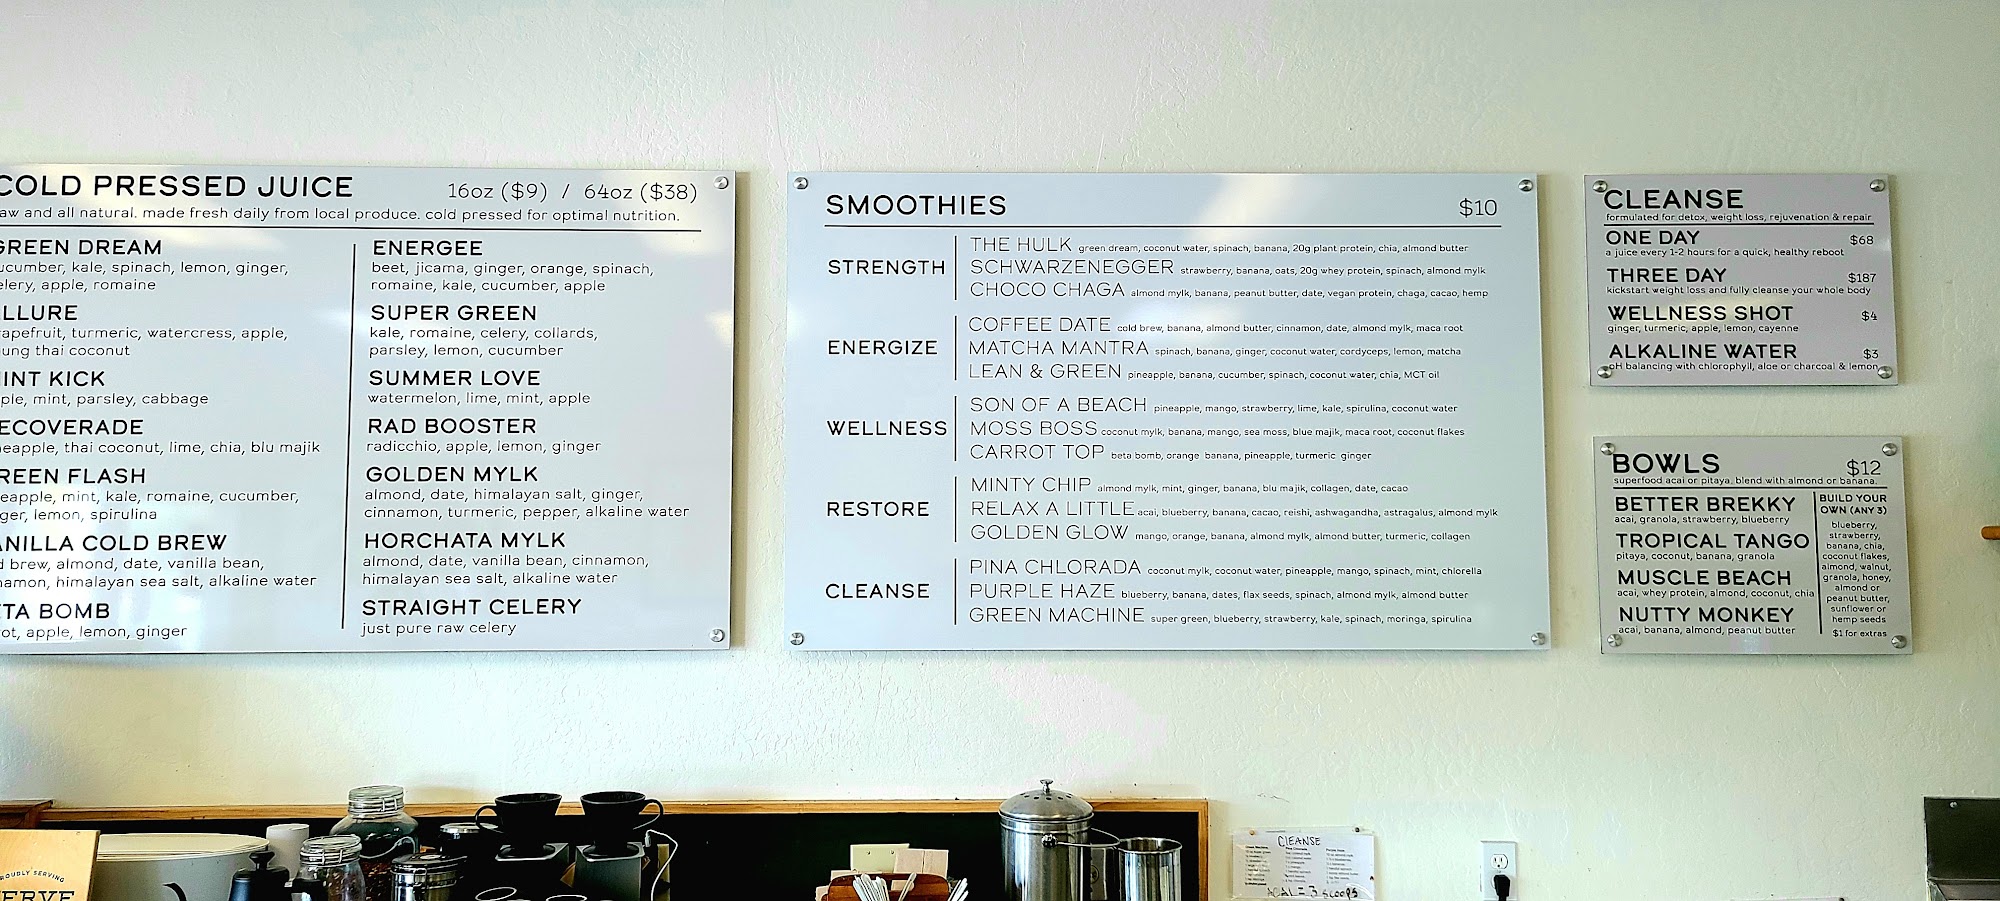 COLD PRESSED JUICE 16oz ($9) / 64oz ($38)
aw and all natural. made fresh daily from local produce. cold pressed for optimal nutrition.
GREEN DREAM
ucumber, kale, spinach, lemon, ginger,
elery, apple, romaine
LLURE
rapefruit, turmeric, watercress, apple,
ung thai coconut
INT KICK
ple, mint, parsley, cabbage
ECOVERADE
neapple, thai coconut, lime, chia, blu majik
REEN FLASH
eapple, mint, kale, romaine, cucumber,
ger, lemon, spirulina
ANILLA COLD BREW
d brew, almond, date, vanilla bean,
namon, himalayan sea salt, alkaline water
ETA BOMB
rot, apple, lemon, ginger
ENERGEE
beet, jicama, ginger, orange, spinach,
romaine, kale, cucumber, apple
SUPER GREEN
kale, romaine, celery, collards,
parsley, lemon, cucumber
SUMMER LOVE
watermelon, lime, mint, apple
RAD BOOSTER
radicchio, apple, lemon, ginger
GOLDEN MYLK
almond, date, himalayan salt, ginger,
cinnamon, turmeric, pepper, alkaline water
HORCHATA MYLK
almond, date, vanilla bean, cinnamon,
himalayan sea salt, alkaline water
STRAIGHT CELERY
just pure raw celery
SMOOTHIES $10
STRENGTH
THE HULK green dream, coconut water, spinach, banana, 20g plant protein, chia, almond butter
SCHWARZENEGGER strawberry, banana, oats, 20g whey protein, spinach, almond mylk
CHOCO CHAGA almond mylk, banana, peanut butter, date, vegan protein, chaga, cacao, hemp
ENERGIZE
COFFEE DATE cold brew, banana, almond butter, cinnamon, date, almond mylk, maca root
MATCHA MANTRA spinach, banana, ginger, coconut water, cordyceps, lemon, matcha
LEAN & GREEN pineapple, banana, cucumber, spinach, coconut water, chia, MCT oil
WELLNESS
SON OF A BEACH pineapple, mango, strawberry, lime, kale, spirulina, coconut water
MOSS BOSS coconut mylk, banana, mango, sea moss, blue majik, maca root, coconut flakes
CARROT TOP beta bomb, orange banana, pineapple, turmeric ginger
RESTORE
MINTY CHIP almond mylk, mint, ginger, banana, blu majik, collagen, date, cacao
RELAX A LITTLE acai, blueberry, banana, cacao, reishi, ashwagandha, astragalus, almond mylk
GOLDEN GLOW mango, orange, banana, almond mylk, almond butter, turmeric, collagen
CLEANSE
PINA CHLORADA coconut mylk, coconut water, pineapple, mango, spinach, mint, chlorella
PURPLE HAZE blueberry, banana, dates, flax seeds, spinach, almond mylk, almond butter
GREEN MACHINE super green, blueberry, strawberry, kale, spinach, moringa, spirulina
CLEANSE
formulated for detox, weight loss, rejuvenation & repair
ONE DAY $68
a juice every 1-2 hours for a quick, healthy reboot
THREE DAY $187
kickstart weight loss and fully cleanse your whole body
WELLNESS SHOT $4
ginger, turmeric, apple, lemon, cayenne
ALKALINE WATER $3
pH balancing with chlorophyll, aloe or charcoal & lemon
BOWLS $12
superfood acai or pitaya. blend with almond or banana.
BETTER BREKKY
acai, granola, strawberry, blueberry
TROPICAL TANGO
pitaya, coconut, banana, granola
MUSCLE BEACH
acai, whey protein, almond, coconut, chia
NUTTY MONKEY
acai, banana, almond, peanut butter
BUILD YOUR
OWN (ANY 3)
blueberry,
strawberry,
banana, chia,
coconut flakes,
almond, walnut,
granola, honey,
almond or
peanut butter,
sunflower or
hemp seeds
$1 for extras
ROUDLY SERVING
ERVE
CLEANSE
= 3 SCOOPS